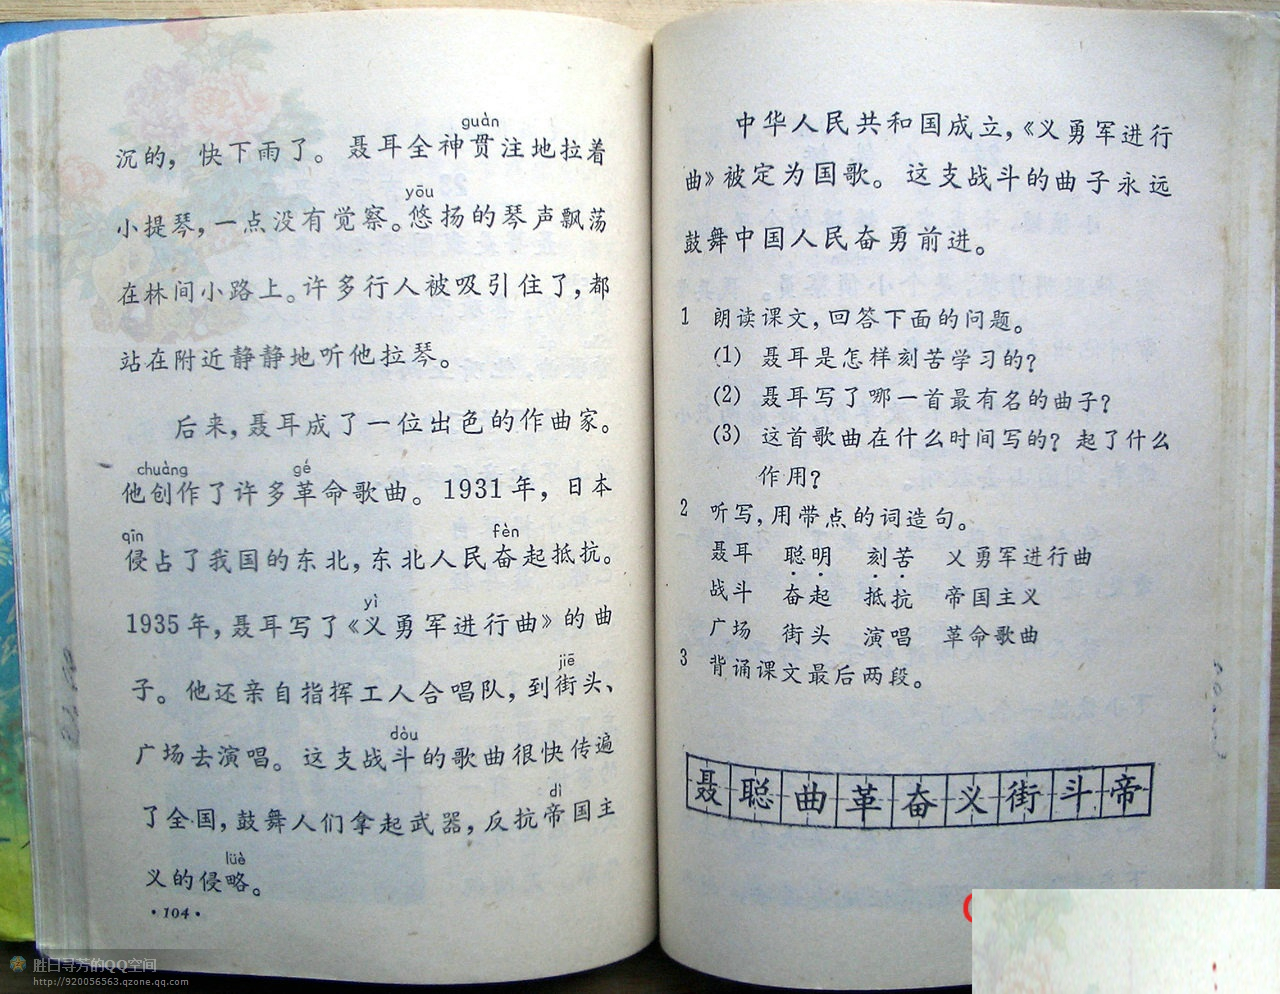 guàn
沉的，快下雨了。聂耳全神贯注地拉着
yōu
小提琴，一点没有觉察。悠扬的琴声飘荡
在林间小路上。许多行人被吸引住了，都
站在附近静静地听他拉琴。
后来，聂耳成了一位出色的作曲家。
chuàng gé
他创作了许多革命歌曲。1931年，日本
qīn fèn
侵占了我国的东北，东北人民奋起抵抗。
yì
1935年，聂耳写了《义勇军进行曲》的曲
jiē
子。他还亲自指挥工人合唱队，到街头、
dòu
广场去演唱。这支战斗的歌曲很快传遍
dì
了全国，鼓舞人们拿起武器，反抗帝国主
lüè
义的侵略。
·104·
中华人民共和国成立，《义勇军进行
曲》被定为国歌。这支战斗的曲子永远
鼓舞中国人民奋勇前进。
1 朗读课文，回答下面的问题。
(1) 聂耳是怎样刻苦学习的？
(2) 聂耳写了哪一首最有名的曲子？
(3) 这首歌曲在什么时间写的？起了什么
作用？
2 听写，用带点的词造句。
聂耳 聪明 刻苦 义勇军进行曲
战斗 奋起 抵抗 帝国主义
广场 街头 演唱 革命歌曲
3 背诵课文最后两段。
聂聪曲革奋义街斗帝
胜日寻芳的QQ空间
http://920056563.qzone.qq.com